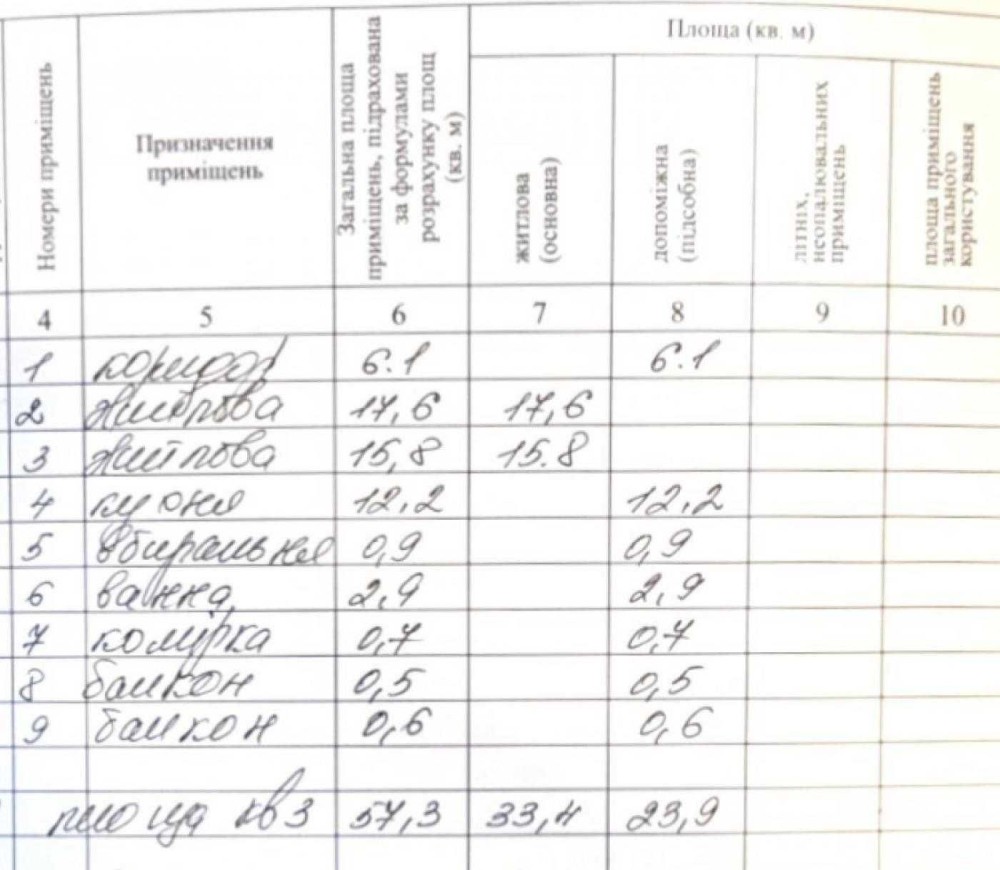 Номери приміщень
Призначення приміщень
Загальна площа приміщень, підрахована за формулами розрахунку площ (кв. м)
Площа (кв. м)
житлова (основна)
допоміжна (підсобна)
літніх, неопалювальних приміщень
площа приміщень загального користування
4 5 6 7 8 9 10
1 коридор 6.1 6.1
2 житлова 17,6 17,6
3 житлова 15,8 15.8
4 кухня 12,2 12,2
5 вбиральня 0,9 0,9
6 ванна 2,9 2,9
7 комірка 0,7 0,7
8 балкон 0,5 0,5
9 балкон 0,6 0,6
площа кв 3 57,3 33,4 23,9